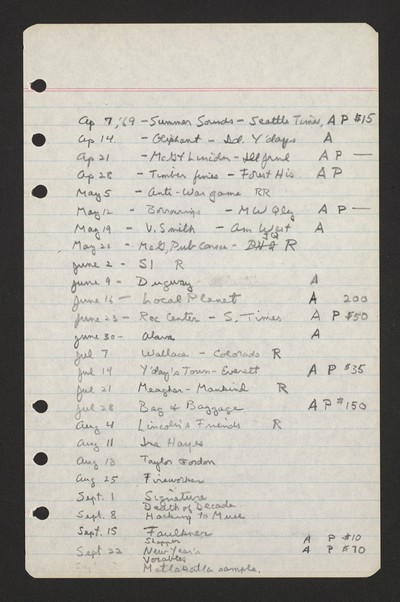 Ap 7, '69 - Summer Sounds - Seattle Times, A P $15
Ap 14 - Oliphant - Id. Y'days A
Ap 21 - McG & Lincoln - Ill Jrnl A P —
Ap 28 - Timber furies - Forest His. A P
May 5 - Anti-War game RR
May 12 - Borrowings - MW Qly A P —
May 19 - V. Smith - Am West A
May 26 - McG, Pub Career - JQ R
June 2 - SI R
June 9 - Dugway A
June 16 - Local Planet A 200
June 23 - Rec Center - S. Times A P $50
June 30 - A
Jul 7 Wallace - Colorado R
Jul 14 Y'day's Town - Everett A P $35
Jul 21 Meagher - Mankind R
Jul 28 Bag & Baggage A P $150
Aug 4 Lincoln's Friends R
Aug 11 Ira Hayes
Aug 18 Taylor Gordon
Aug 25 Fireworks
Sept. 1 Signature
Death of Decade
Sept. 8 Hacking to Muse
Sept. 15 Faulkner
Shopper A P $10
Sept. 22 New Year's A P $70
Vocables
Metlakatla sample.